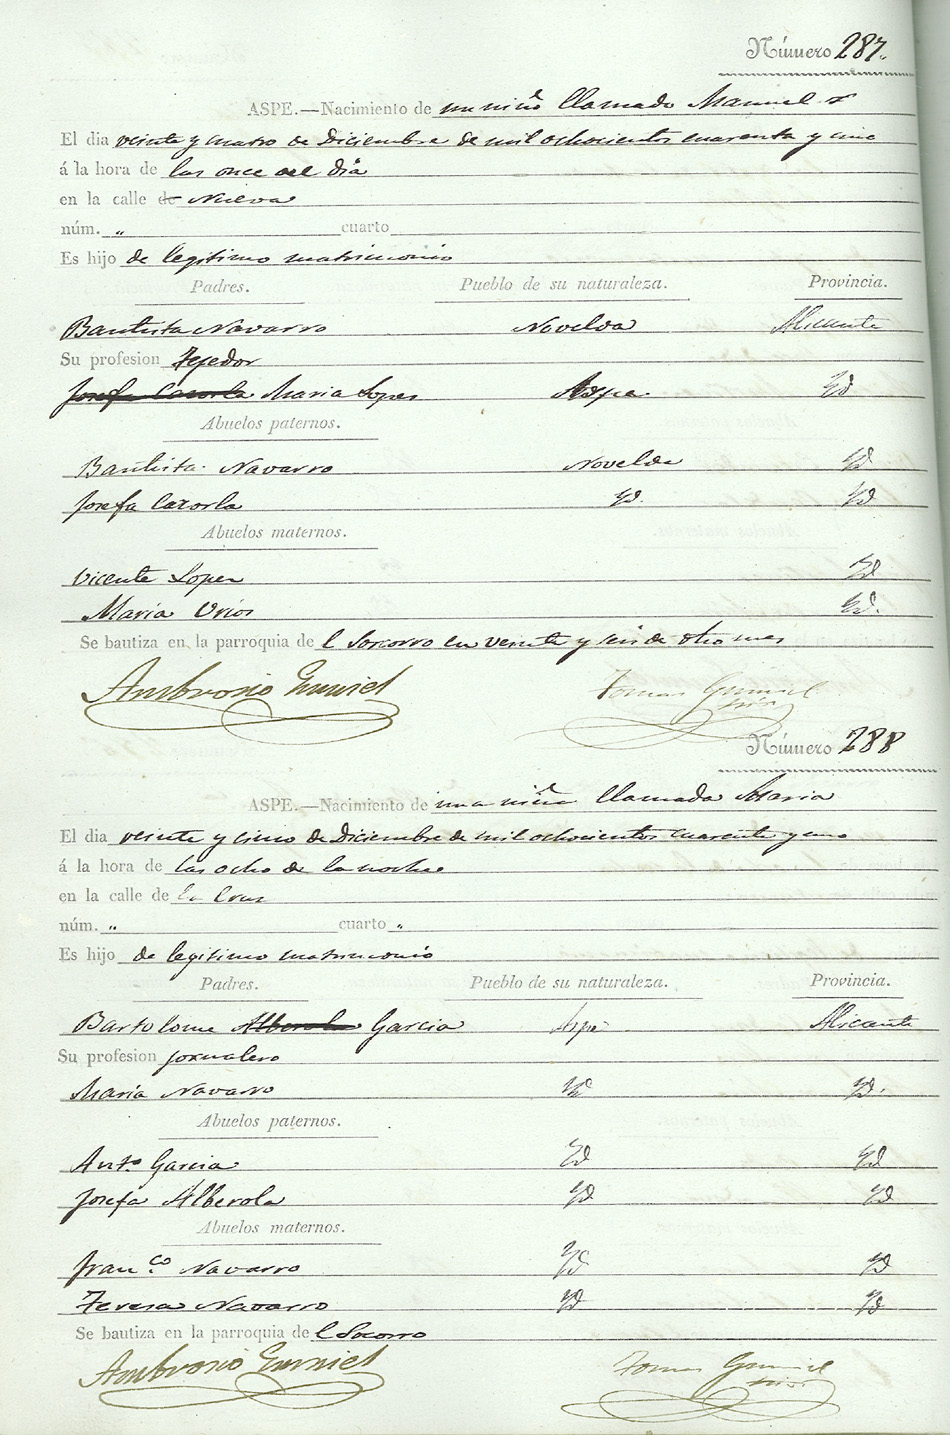 Número 287.
ASPE.—Nacimiento de un niño llamado Manuel
El dia veinte y cuatro de Diciembre de mil ochocientos cuarenta y uno
á la hora de las once del dia
en la calle de Nueva
núm. " cuarto
Es hijo de legitimo matrimonio
Padres. Pueblo de su naturaleza. Provincia.
Bautista Navarro Novelda Alicante
Su profesion Tejedor
Josefa Cazorla Maria Lopez Aspe Yd
Abuelos paternos.
Bautista Navarro Novelda Yd
Josefa Cazorla Yd. Yd
Abuelos maternos.
Vicente Lopez Yd
Maria Urios Yd.
Se bautiza en la parroquia de l Socorro en veinte y seis de dho mes
Ambrosio Gumiel Tomas Gumiel
Srio
Número 288
ASPE.—Nacimiento de una niña llamada Maria
El dia veinte y cinco de Diciembre de mil ochocientos cuarenta y uno
á la hora de las ocho de la noche
en la calle de La Cruz
núm. " cuarto "
Es hijo de legitimo matrimonio
Padres. Pueblo de su naturaleza. Provincia.
Bartolome Alberola Garcia Aspe Alicante
Su profesion jornalero
Maria Navarro Yd Yd.
Abuelos paternos.
Anto. Garcia Yd Yd
Josefa Alberola Yd Yd
Abuelos maternos.
Franco. Navarro Yd Yd
Teresa Navarro Yd Yd
Se bautiza en la parroquia de l Socorro
Ambrosio Gumiel Tomas Gumiel
Srio